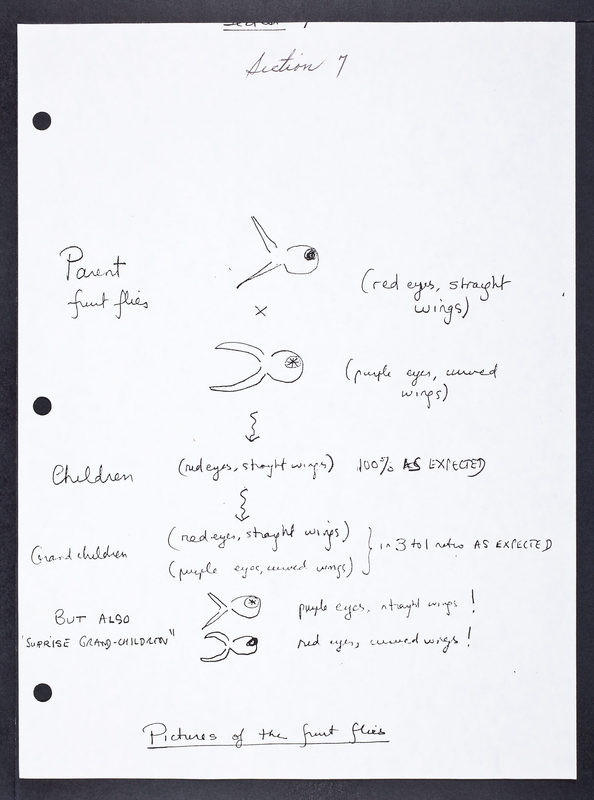 Section 7
Parent
fruit flies
(red eyes, straight
wings)
×
(purple eyes, curved
wings)
Children (red eyes, straight wings) 100% AS EXPECTED
Grandchildren (red eyes, straight wings)
(purple eyes, curved wings) } in 3 to 1 ratio AS EXPECTED
BUT ALSO
"SUPRISE GRAND-CHILDREN"
purple eyes, straight wings !
red eyes, curved wings !
Pictures of the fruit flies